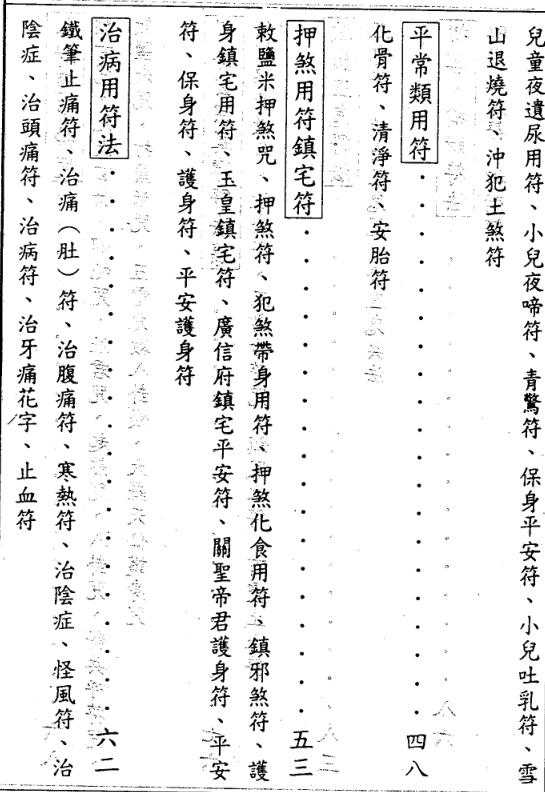 兒童夜遺尿用符、小兒夜啼符、青驚符、保身平安符、小兒吐乳符、雪
山退燒符、沖犯土煞符
平常類用符．．．．．．．．．．．．．．．．四八
化骨符、清淨符、安胎符
押煞用符鎮宅符．．．．．．．．．．．．．．五三
敕鹽米押煞咒、押煞符、犯煞帶身用符、押煞化食用符、鎮邪煞符、護
身鎮宅用符、玉皇鎮宅符、廣信府鎮宅平安符、關聖帝君護身符、平安
符、保身符、護身符、平安護身符
治病用符法．．．．．．．．．．．．．．．．六二
鐵筆止痛符、治痛（肚）符、治腹痛符、寒熱符、治陰症、怪風符、治
陰症、治頭痛符、治病符、治牙痛花字、止血符